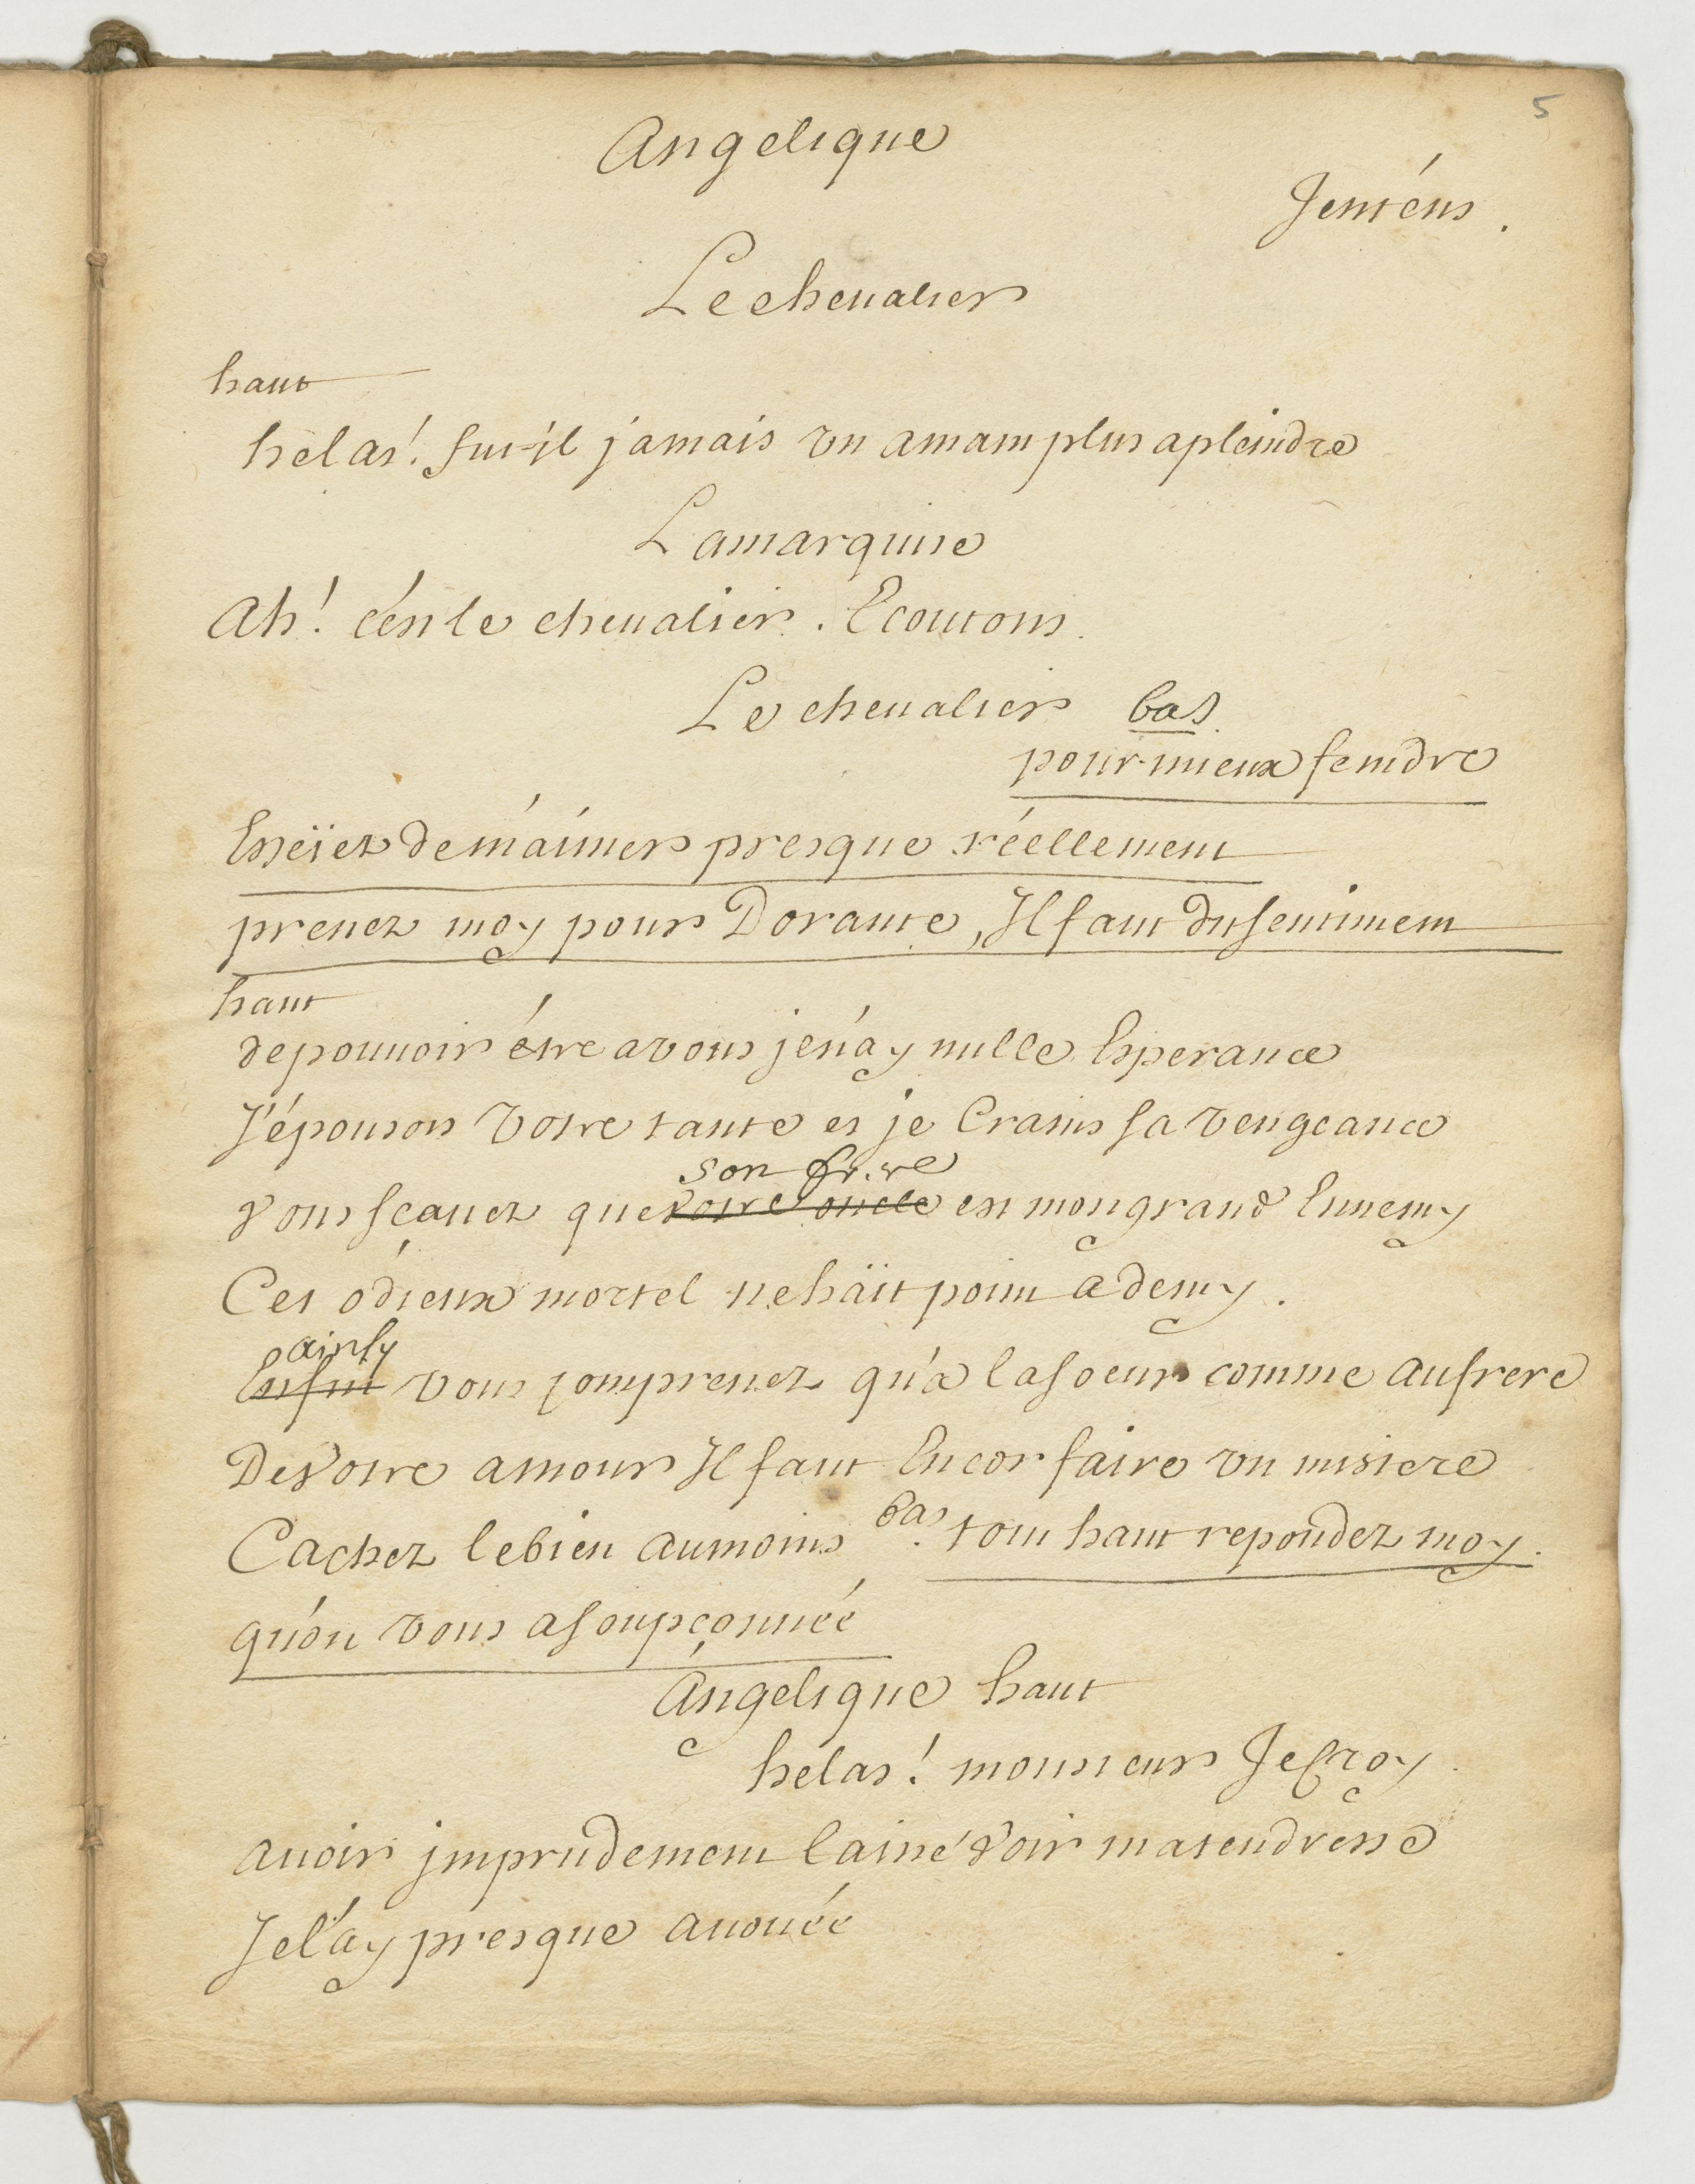 5
Angelique
J'entens.
Le chevalier
haut
helas! fut-il jamais un amant plus a pleindre
La marquise
Ah! c'est le chevalier. Ecoutons.
Le chevalier bas
pour mieux feindre
Esseïez de m'aimer presque réellement
prenez moy pour Dorante, Il faut du sentiment
haut
de pouvoir étre a vous je n'ay nulle Esperance
J'épousois votre tante et je Crains sa vengeance
Vous sçavez que votre oncle son frere est mon grand Ennemy
Cet odieux mortel ne haït point a demy.
Enfin ainsy vous comprenez qu'a la soeur comme au frere
De votre amour Il faut Encor faire un mistere
Cachez le bien au moins bas. tout haut repondez moy.
qu'on vous a soupçonnée
Angelique haut
helas! monsieur Je croy
avoir imprudement laissé voir ma tendresse
Je l'ay presque avouée